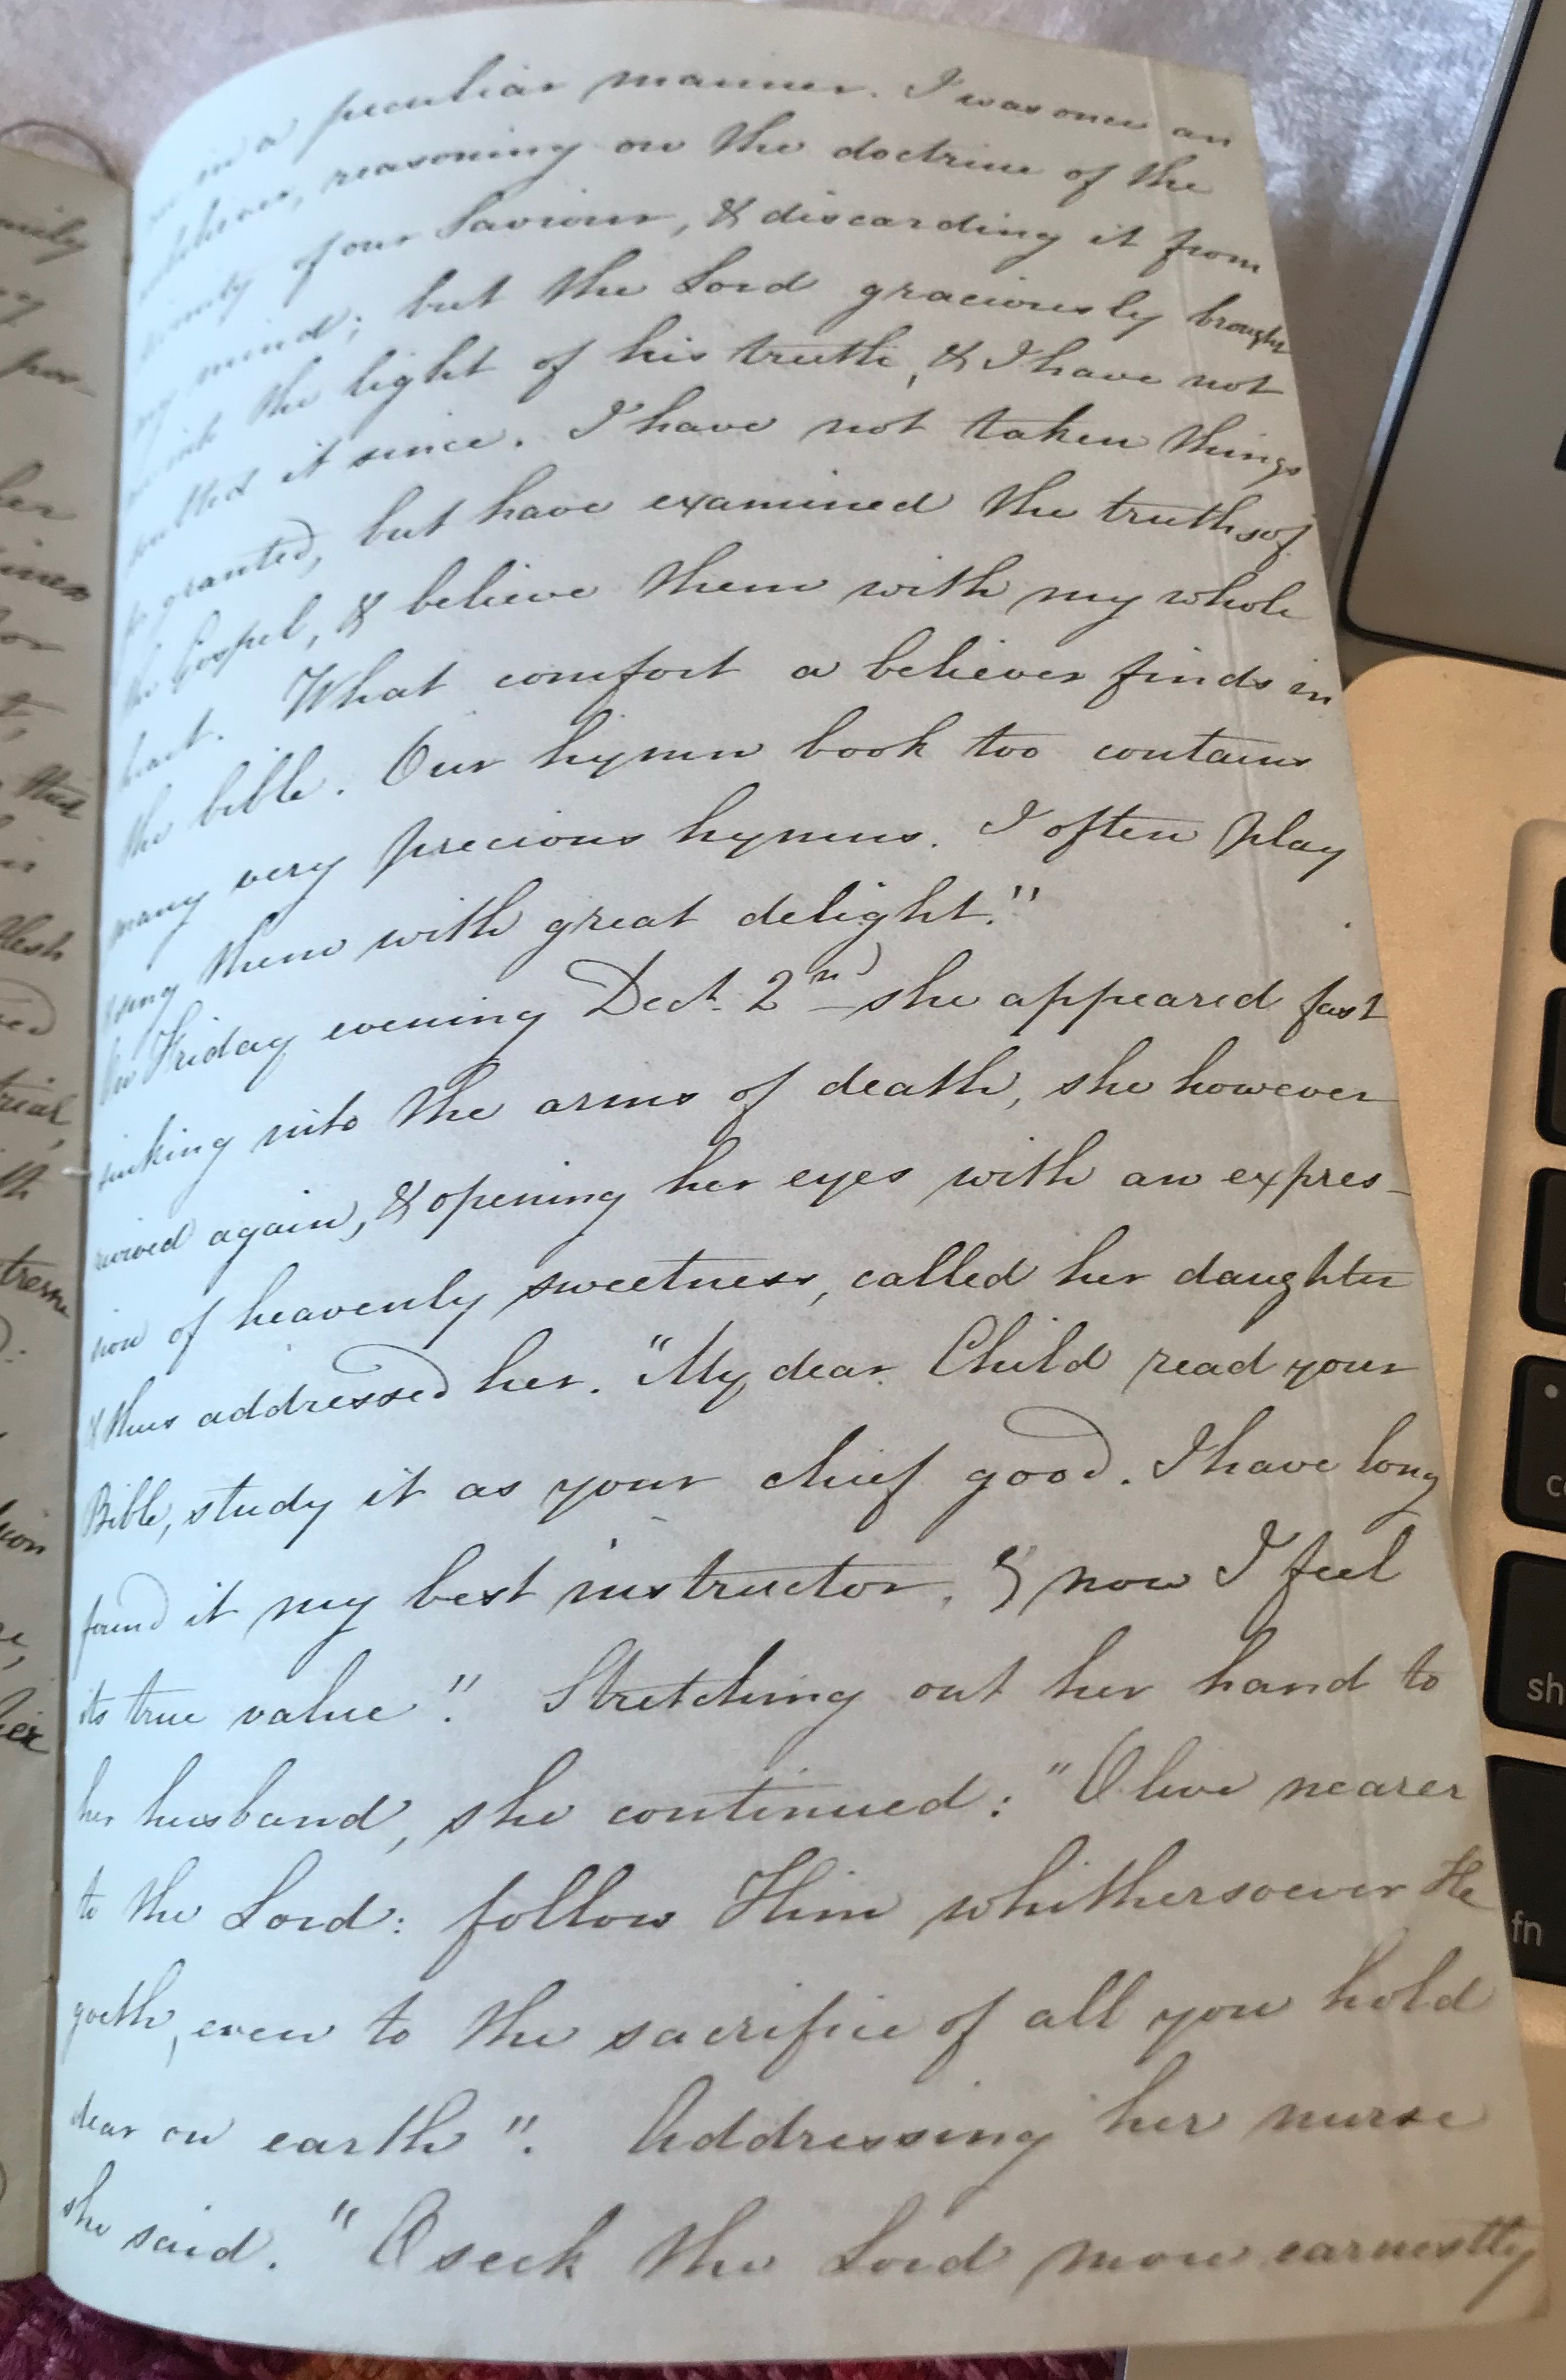 me in a peculiar manner. I was once an
unbeliever, reasoning on the doctrine of the
of our Saviour, & discarding it from
my mind; but the Lord graciously brought
the light of his truth, & I have not
doubted it since. I have not taken things
for granted, but have examined the truths of
the Gospel, & believe them with my whole
heart. What comfort a believer finds in
the bible. Our hymn book too contains
many very precious hymns. I often play
& sing them with great delight."
On Friday evening Decr. 2nd she appeared fast
sinking into the arms of death, she however
revived again, & opening her eyes with an expres-
sion of heavenly sweetness, called her daughter
& thus addressed her. "My dear Child read your
Bible, study it as your chief good. I have long
found it my best instructor, & now I feel
its true value". Stretching out her hand to
her husband, she continued: "O live nearer
to the Lord: follow Him whithersoever He
goeth, even to the sacrifice of all you hold
dear on earth". Addressing her nurse
she said. "O seek the Lord more earnestly